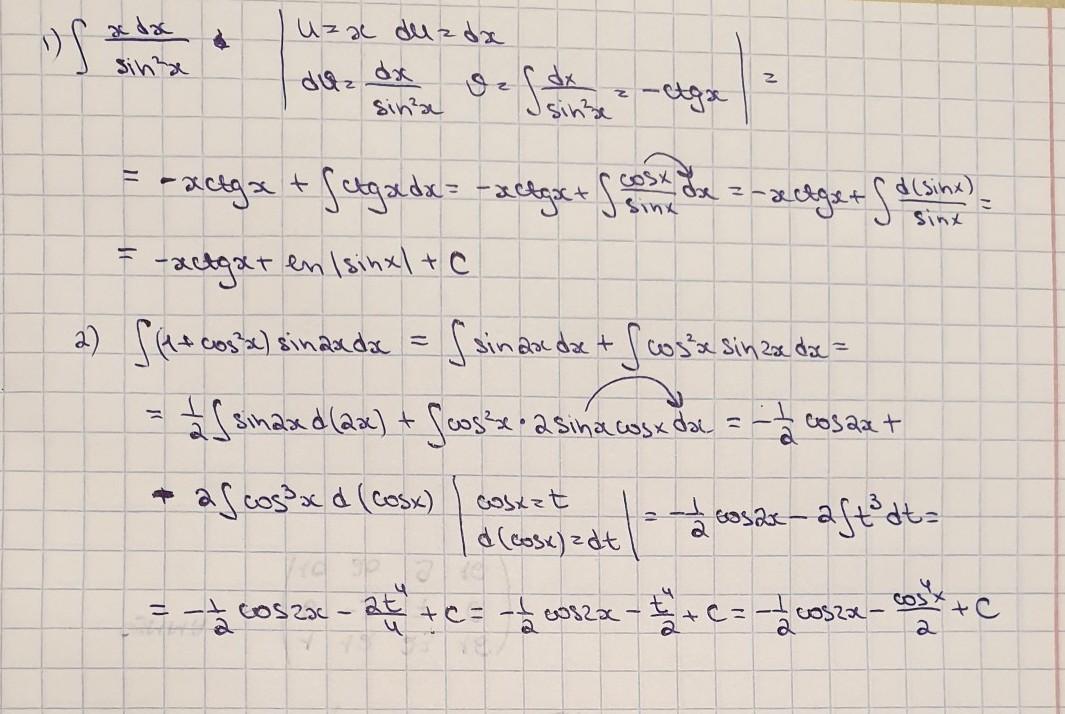 1) ∫ x dx / sin²x | u = x du = dx
dϑ = dx / sin²x ϑ = ∫ dx / sin²x = -ctgx | =
= -xctgx + ∫ctgxdx = -xctgx + ∫ cosx / sinx dx = -xctgx + ∫ d(sinx) / sinx =
= -xctgx + ln|sinx| + C
2) ∫(1+cos²x) sin2xdx = ∫ sin2xdx + ∫ cos²x sin2x dx =
= 1/2 ∫ sin2x d(2x) + ∫ cos²x · 2sinxcosx dx = -1/2 cos2x +
- 2∫cos³x d(cosx) | cosx = t
d(cosx) = dt | = -1/2 cos2x - 2∫t³dt =
= -1/2 cos2x - 2t⁴/4 + C = -1/2 cos2x - t⁴/2 + C = -1/2 cos2x - cos⁴x/2 + C